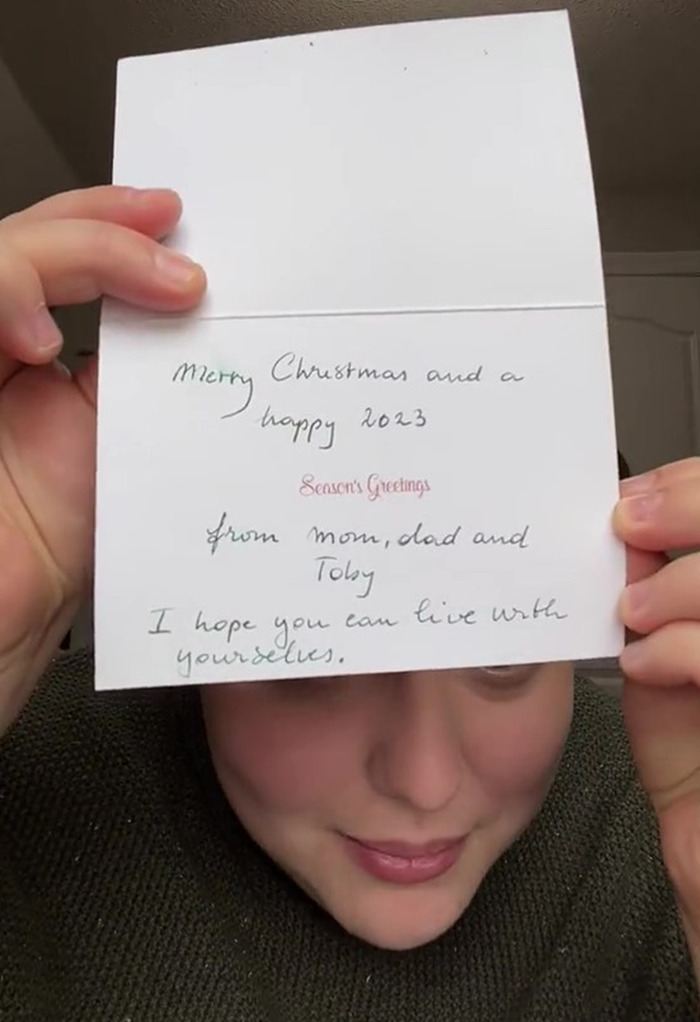 Merry Christmas and a
happy 2023
Season's Greetings
from mom, dad and
Toby
I hope you can live with
yourselves.